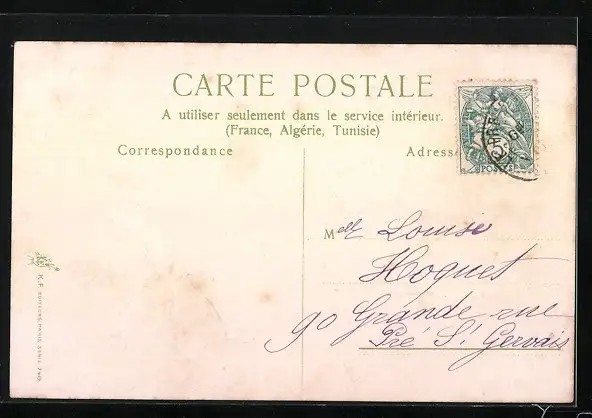 CARTE POSTALE
A utiliser seulement dans le service intérieur.
(France, Algérie, Tunisie)
Correspondance
Adresse
5c
POSTES
Melle Louise
Hoquet
90 Grande rue
Pré St Gervais
K.F. EDITEURS, PARIS, SÉRIE 740